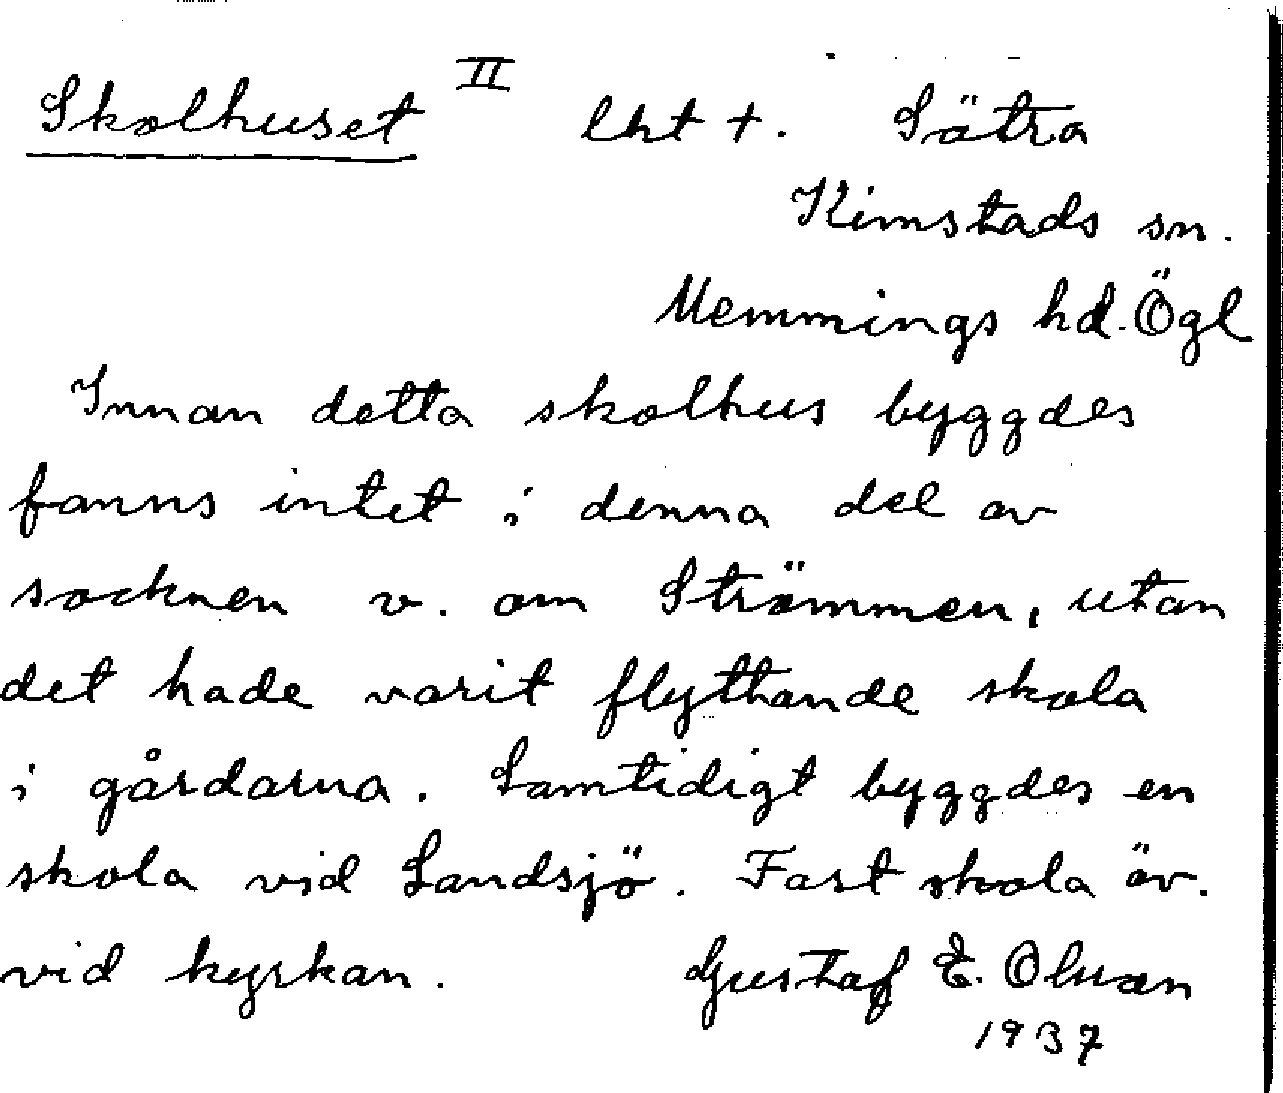 Skolhuset II lht +. Sätra
Kimstads sn.
Memmings hd. Ögl
Innan detta skolhus byggdes
fanns intet i denna del av
socknen v. om Strömmen, utan
det hade varit flyttande skola
i gårdarna. Samtidigt byggdes en
skola vid Landsjö. Fast skola äv.
vid kyrkan. Gustaf E. Olson
1937